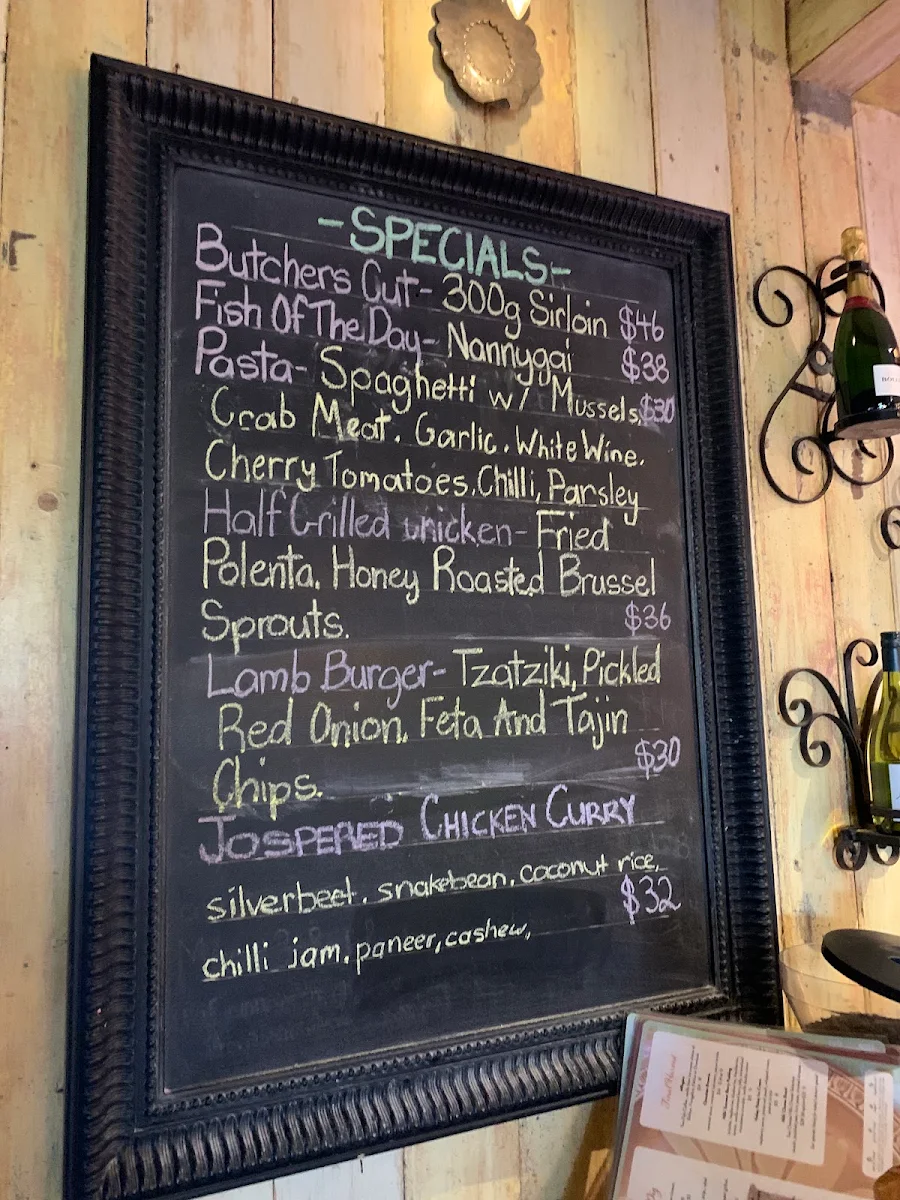 -SPECIALS-
Butchers Cut- 300g Sirloin $46
Fish Of The Day- Nannygai $38
Pasta- Spaghetti w/ Mussels, $30
Crab Meat. Garlic. White Wine.
Cherry Tomatoes. Chilli, Parsley
Half Grilled chicken- Fried
Polenta. Honey Roasted Brussel
Sprouts. $36
Lamb Burger- Tzatziki, Pickled
Red Onion. Feta And Tajin
Chips. $30
JOSPERED CHICKEN CURRY
silverbeet. snakebean. coconut rice,
$32
chilli jam. paneer, cashew,